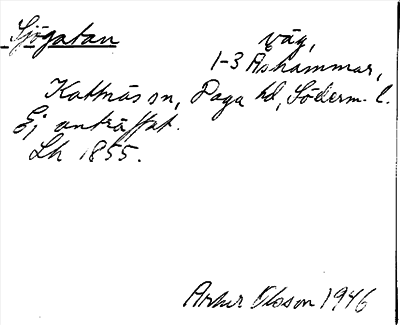 Sjögatan väg,
1-3 Åshammar,
Kattnäs sn, Daga hd, Söderm. l.
Ej anträffat.
Lh 1855.
Artur Olsson 1946